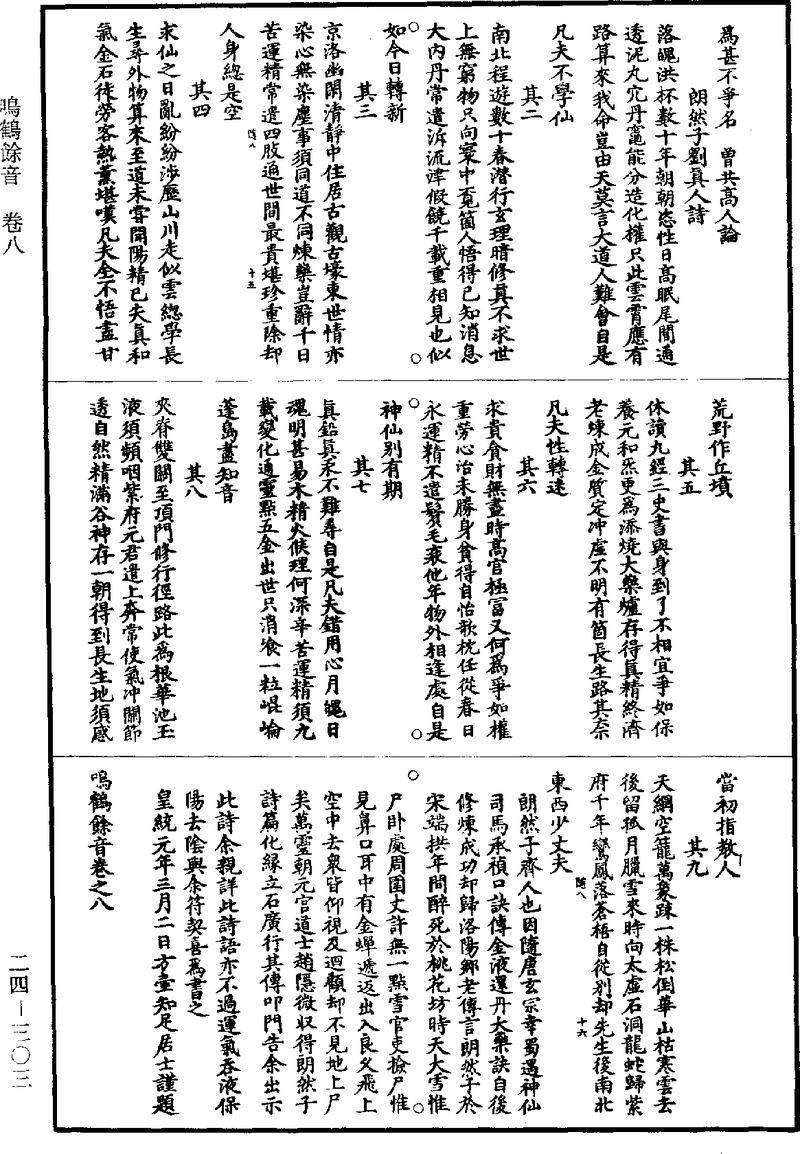 爲甚不爭名　曾共高人論
朗然子劉眞人詩
落魄洪杯數十年朝朝恣性日高眠尾閭通
透泥丸穴丹竈能分造化權只此雲霄應有
路算來我命豈由天莫言大道人難會自是
凡夫不學仙
其二
南北程遊數十春潛行玄理暗修眞不求世
上無窮物只向寰中覓箇人悟得已知消息
大內丹常遣泝流津假饒千載重相見也似
如今日轉新
其三
京洛幽閑清靜中住居古觀古壕東世情亦
染心無染塵事須同道不同煉藥豈辭千日
苦運精常遣四肢通世間最貴堪珍重除却
隨八　十五
人身總是空
其四
求仙之日亂紛紛涉歷山川走似雲總學長
生尋外物算來至道未曾聞陽精已失眞和
氣金石徒勞客熱薰堪嘆凡夫全不悟盡甘
荒野作丘墳
其五
休讀九經三史書與身到了不相宜爭如保
養元和炁更爲添燒大藥爐存得眞精終濟
老煉成金質定沖虛不明有箇長生路其奈
凡夫性轉迷
其六
求貴貪財無盡時高官極富又何爲爭如權
重勞心治未勝身貧得自怡歌枕任從春日
永運精不遣鬢毛衰他年物外相逢處自是
神仙別有期
其七
眞鉛眞汞不難尋自是凡夫錯用心月魄日
魂明甚易木精火候理何深辛苦運精須九
載變化通靈點五金出世只消飡一粒崐崘
蓬島盡知音
其八
夾脊雙關至頂門修行徑路此爲根華池玉
液須頻咽紫府元君遣上奔常使氣沖關節
透自然精滿谷神存一朝得到長生地須感
當初指教人
其九
天網空籠萬象踈一株松倒華山枯寒雲去
後留孤月臘雪來時向太虛石洞龍蛇歸紫
府千年鸞鳳落蒼梧自從別却先生後南北
隨八　十六
東西少丈夫
朗然子齊人也因隨唐玄宗幸蜀遇神仙
司馬承禎口訣傳金液還丹大藥訣自後
修煉成功却歸洛陽鄉老傳言朗然子於
宋端拱年間醉死於桃花坊時天大雪惟
尸卧處周圍丈許無一點雪官吏撿尸惟
見鼻口耳中有金蟬遞返出入良久飛上
空中去衆皆仰視及迴顧却不見地上尸
矣萬靈朝元宮道士趙隱微収得朗然子
詩篇化緣立石廣行其傳叩門告余出示
此詩余親詳此詩語亦不過運氣吞液保
陽去陰與余符契喜爲書之
皇統元年三月二日方壷知足居士謹題
鳴鶴餘音卷之八
鳴鶴餘音　卷八
二四－三〇三